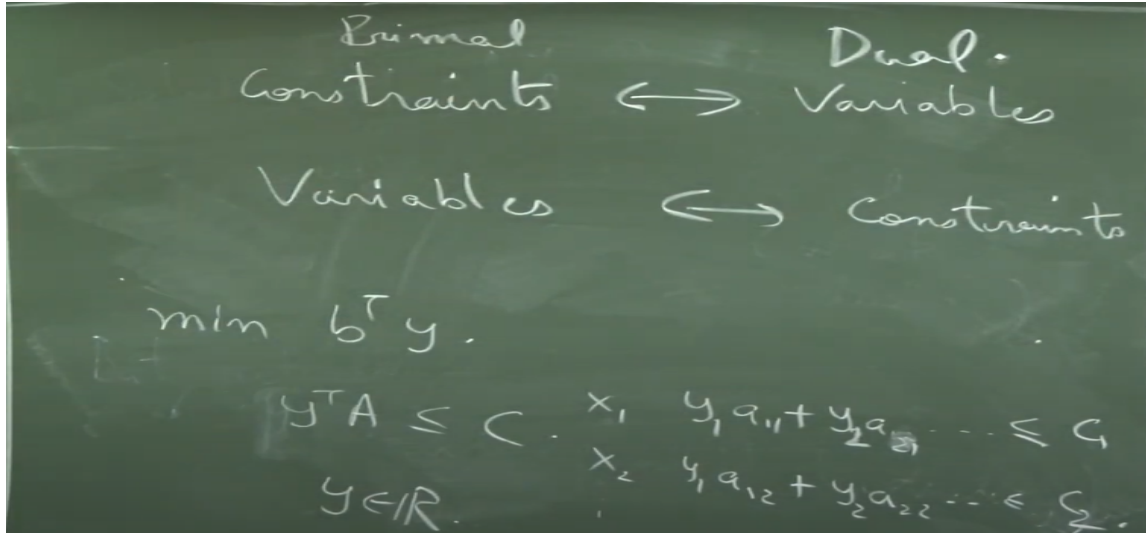 Primal Dual.
Constraints ⟷ Variables
Variables ⟷ Constraints
min bᵀy.
yᵀA ≤ C. x₁ y₁a₁₁ + y₂a₂₁ ... ≤ C₁
x₂ y₁a₁₂ + y₂a₂₂ ... ≤ C₂.
y ∈ ℝ.